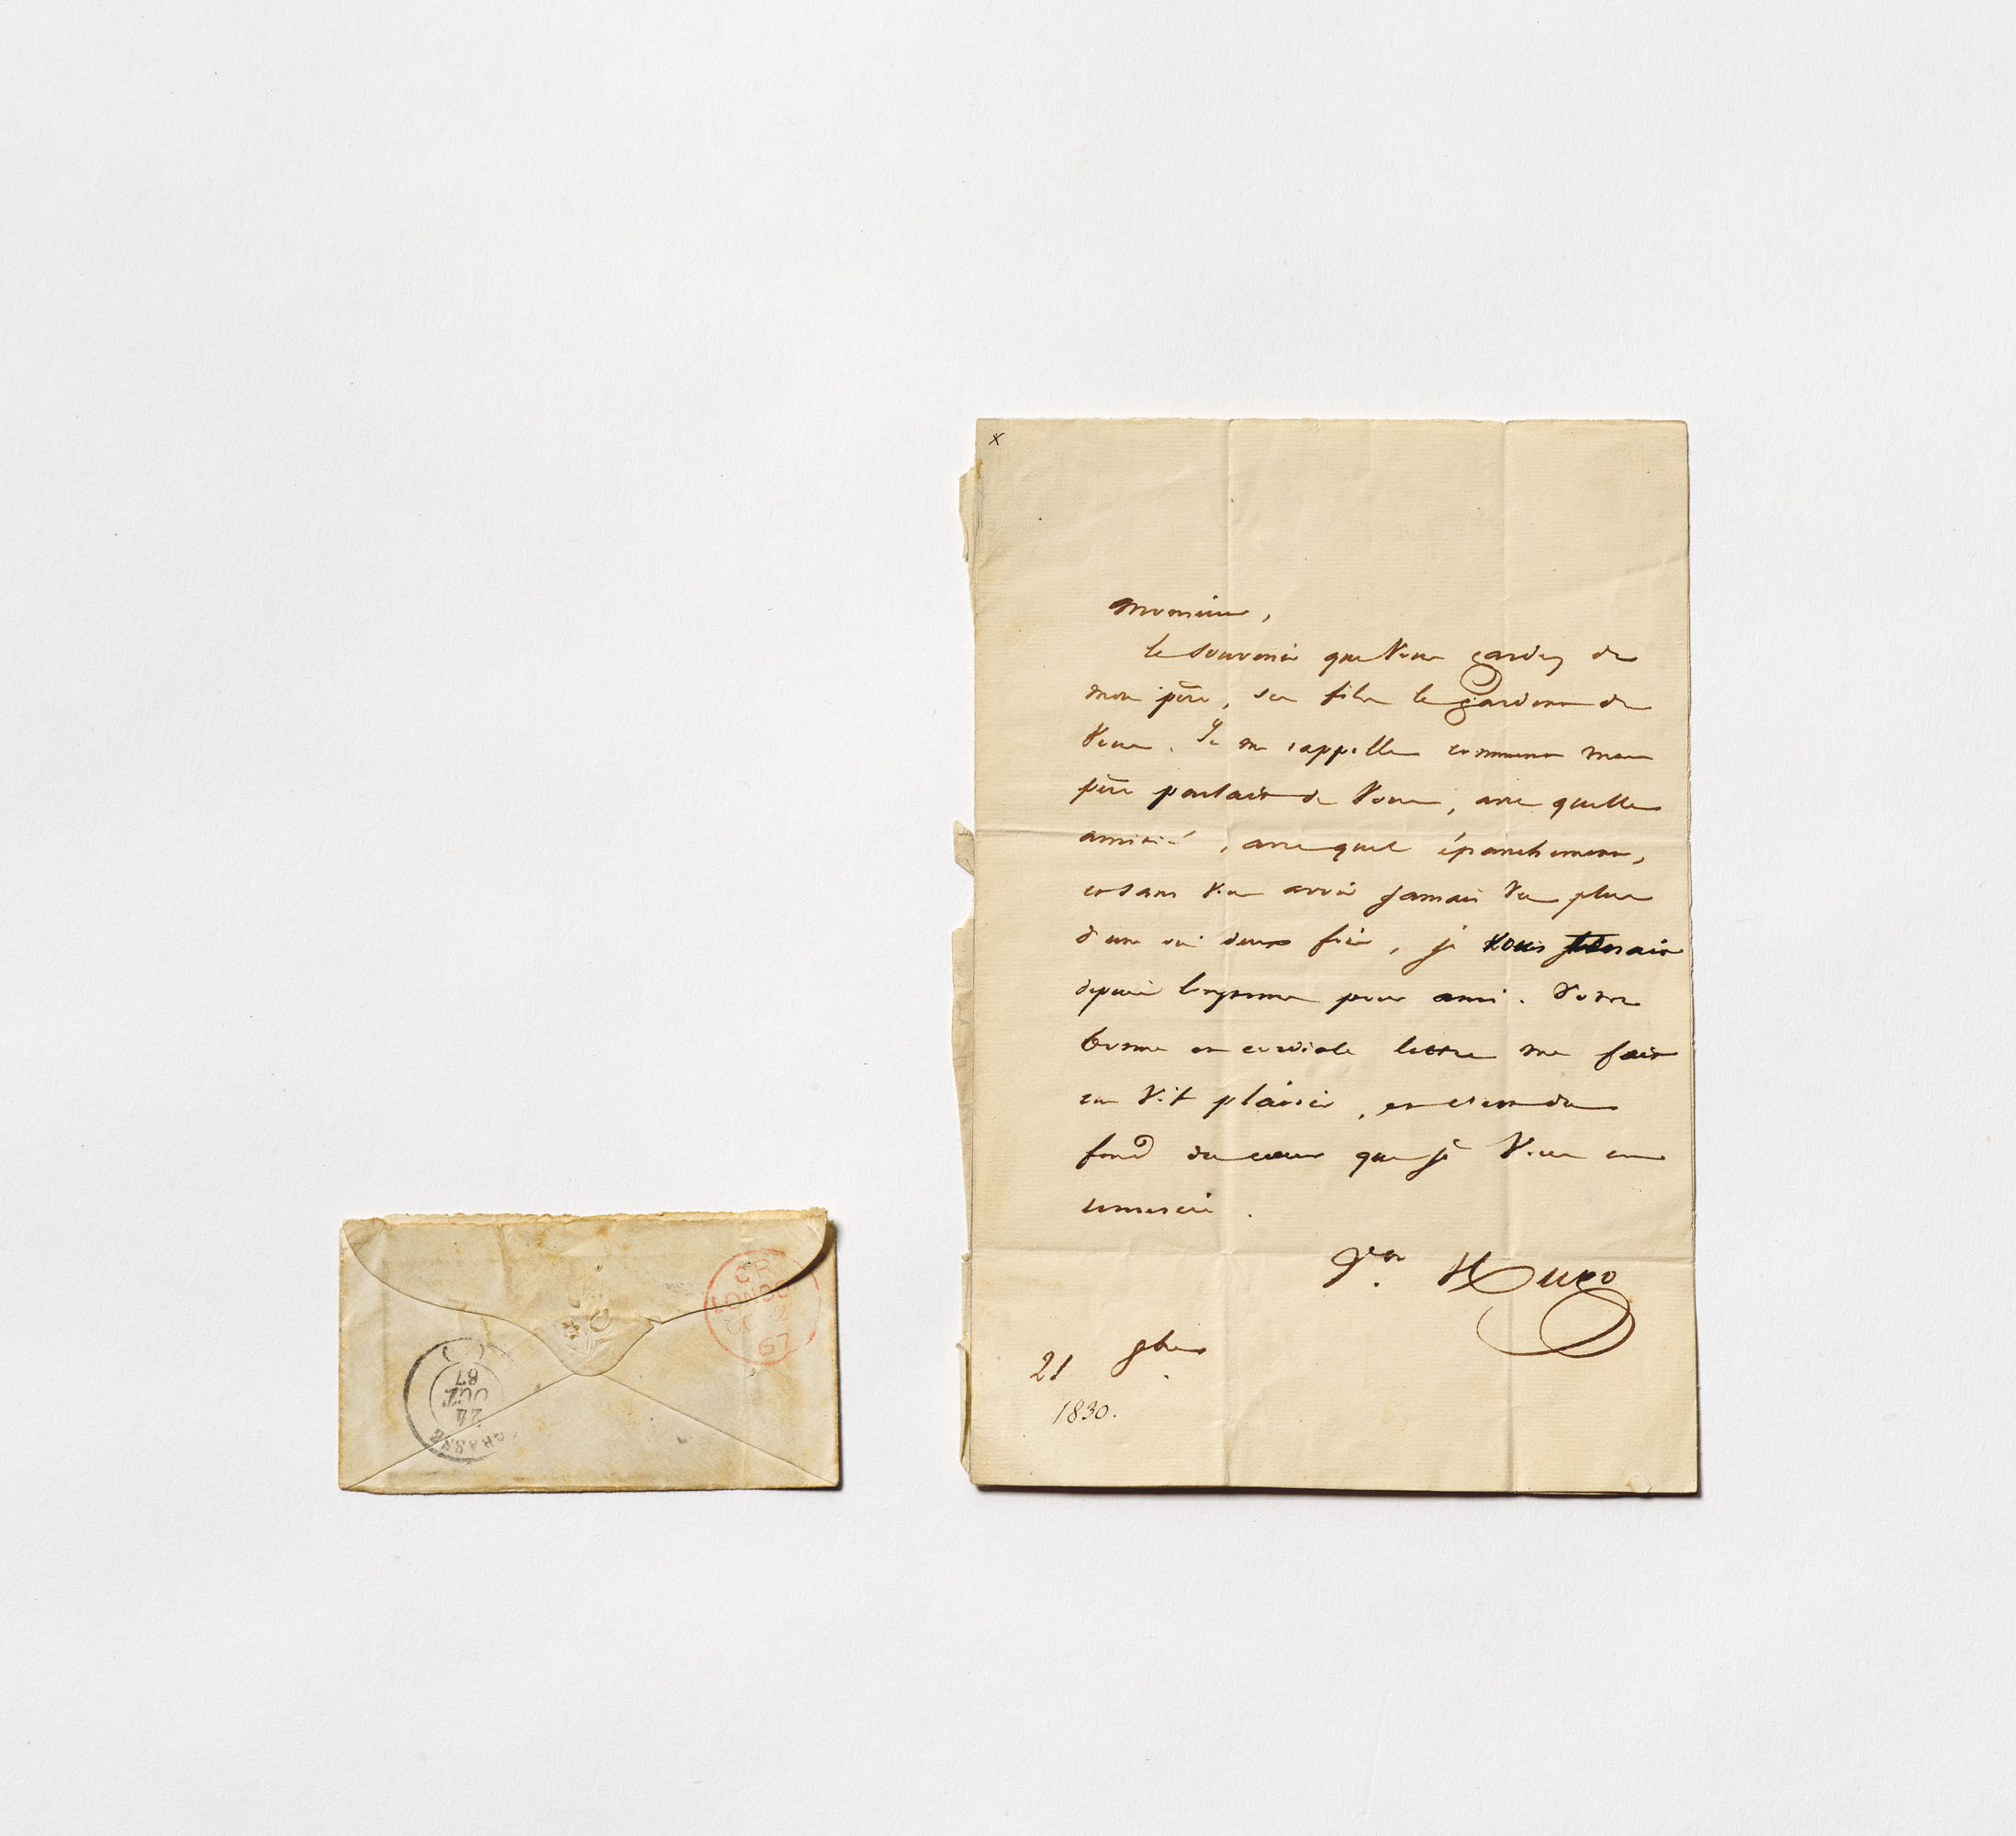 x
Monsieur,
le souvenir que vous gardez de
mon père, ses fils le gardent de
vous. Je me rappelle comment mon
père parlait de vous, avec quelle
amitié, avec quel épanchement,
et sans vous avoir jamais vu plus
d'une ou deux fois, je vous tenais
depuis longtemps pour ami. Votre
bonne et cordiale lettre me fait
un vif plaisir, et c'est du
fond du cœur que je vous en
remercie.
Vor Hugo
21 9bre
1830.
67
24
OCT.
67
GRASSE